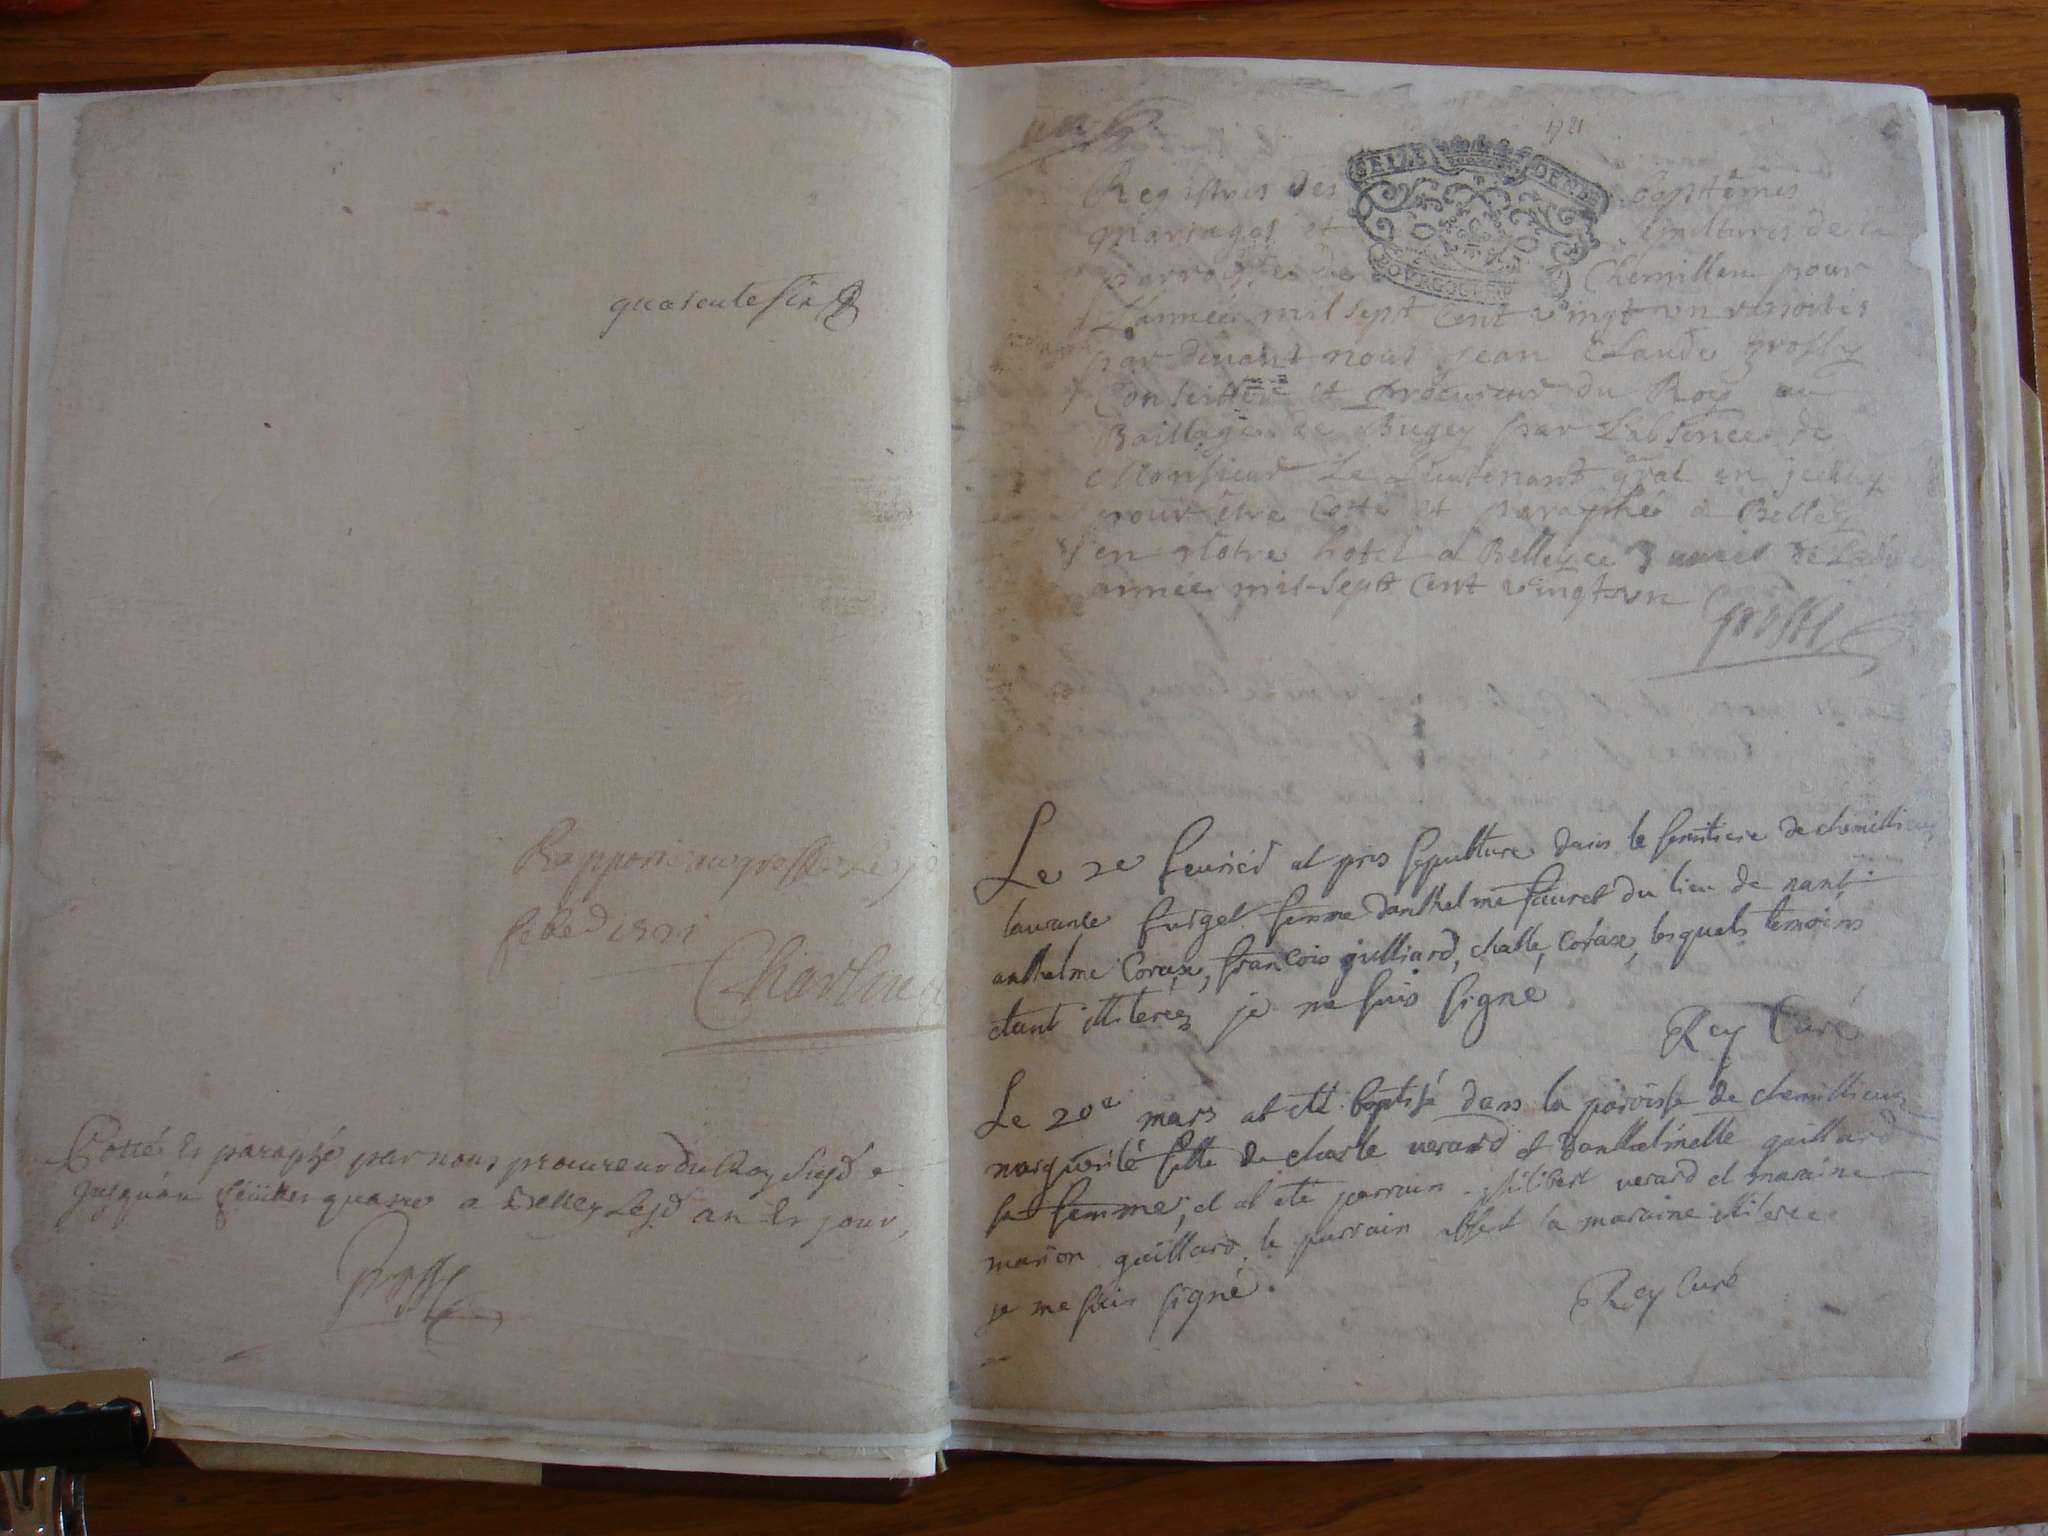 quarente six
Rapporté au greffe le
febr 1721
Cotté et paraphé par nous procureur du Roy susd
jusqu'au feüillet quatre a Belley lesd an et jour,
1721
Registres des baptêmes
mariages et sepultures de la
parroisse de Chemillieu pour
L'année mil sept cent vingt un
par devant nous jean Claude Grossy
Conseiller et procureur du Roy au
Bailliage de Bugey par L'absence de
Monsieur Le Lieutenant gñal
pour être Cotté et paraphé a Belley
en nôtre hotel a Belley ce 3 de
année mil-sept cent vingt un
Le 2e feurier at pris sepulture dans le semitiere de chemillieu
laurance furget femme danthelme fauret du lieu de nant
anthelme Coraxe, francois gulliard, chatle, Coraxe, lesquels temoins
etant illiterez je me suis signe
Rey Curé
Le 20e mars at eté baptisé dans la paroisse de chemillieux
marguerite fille de charle verard et danthelmette guillard
sa femme, et at ete parrain philibert verard et maraine
marion guillard le parrain absent la maraine illiteree
je me suis signé.
Rey Curé